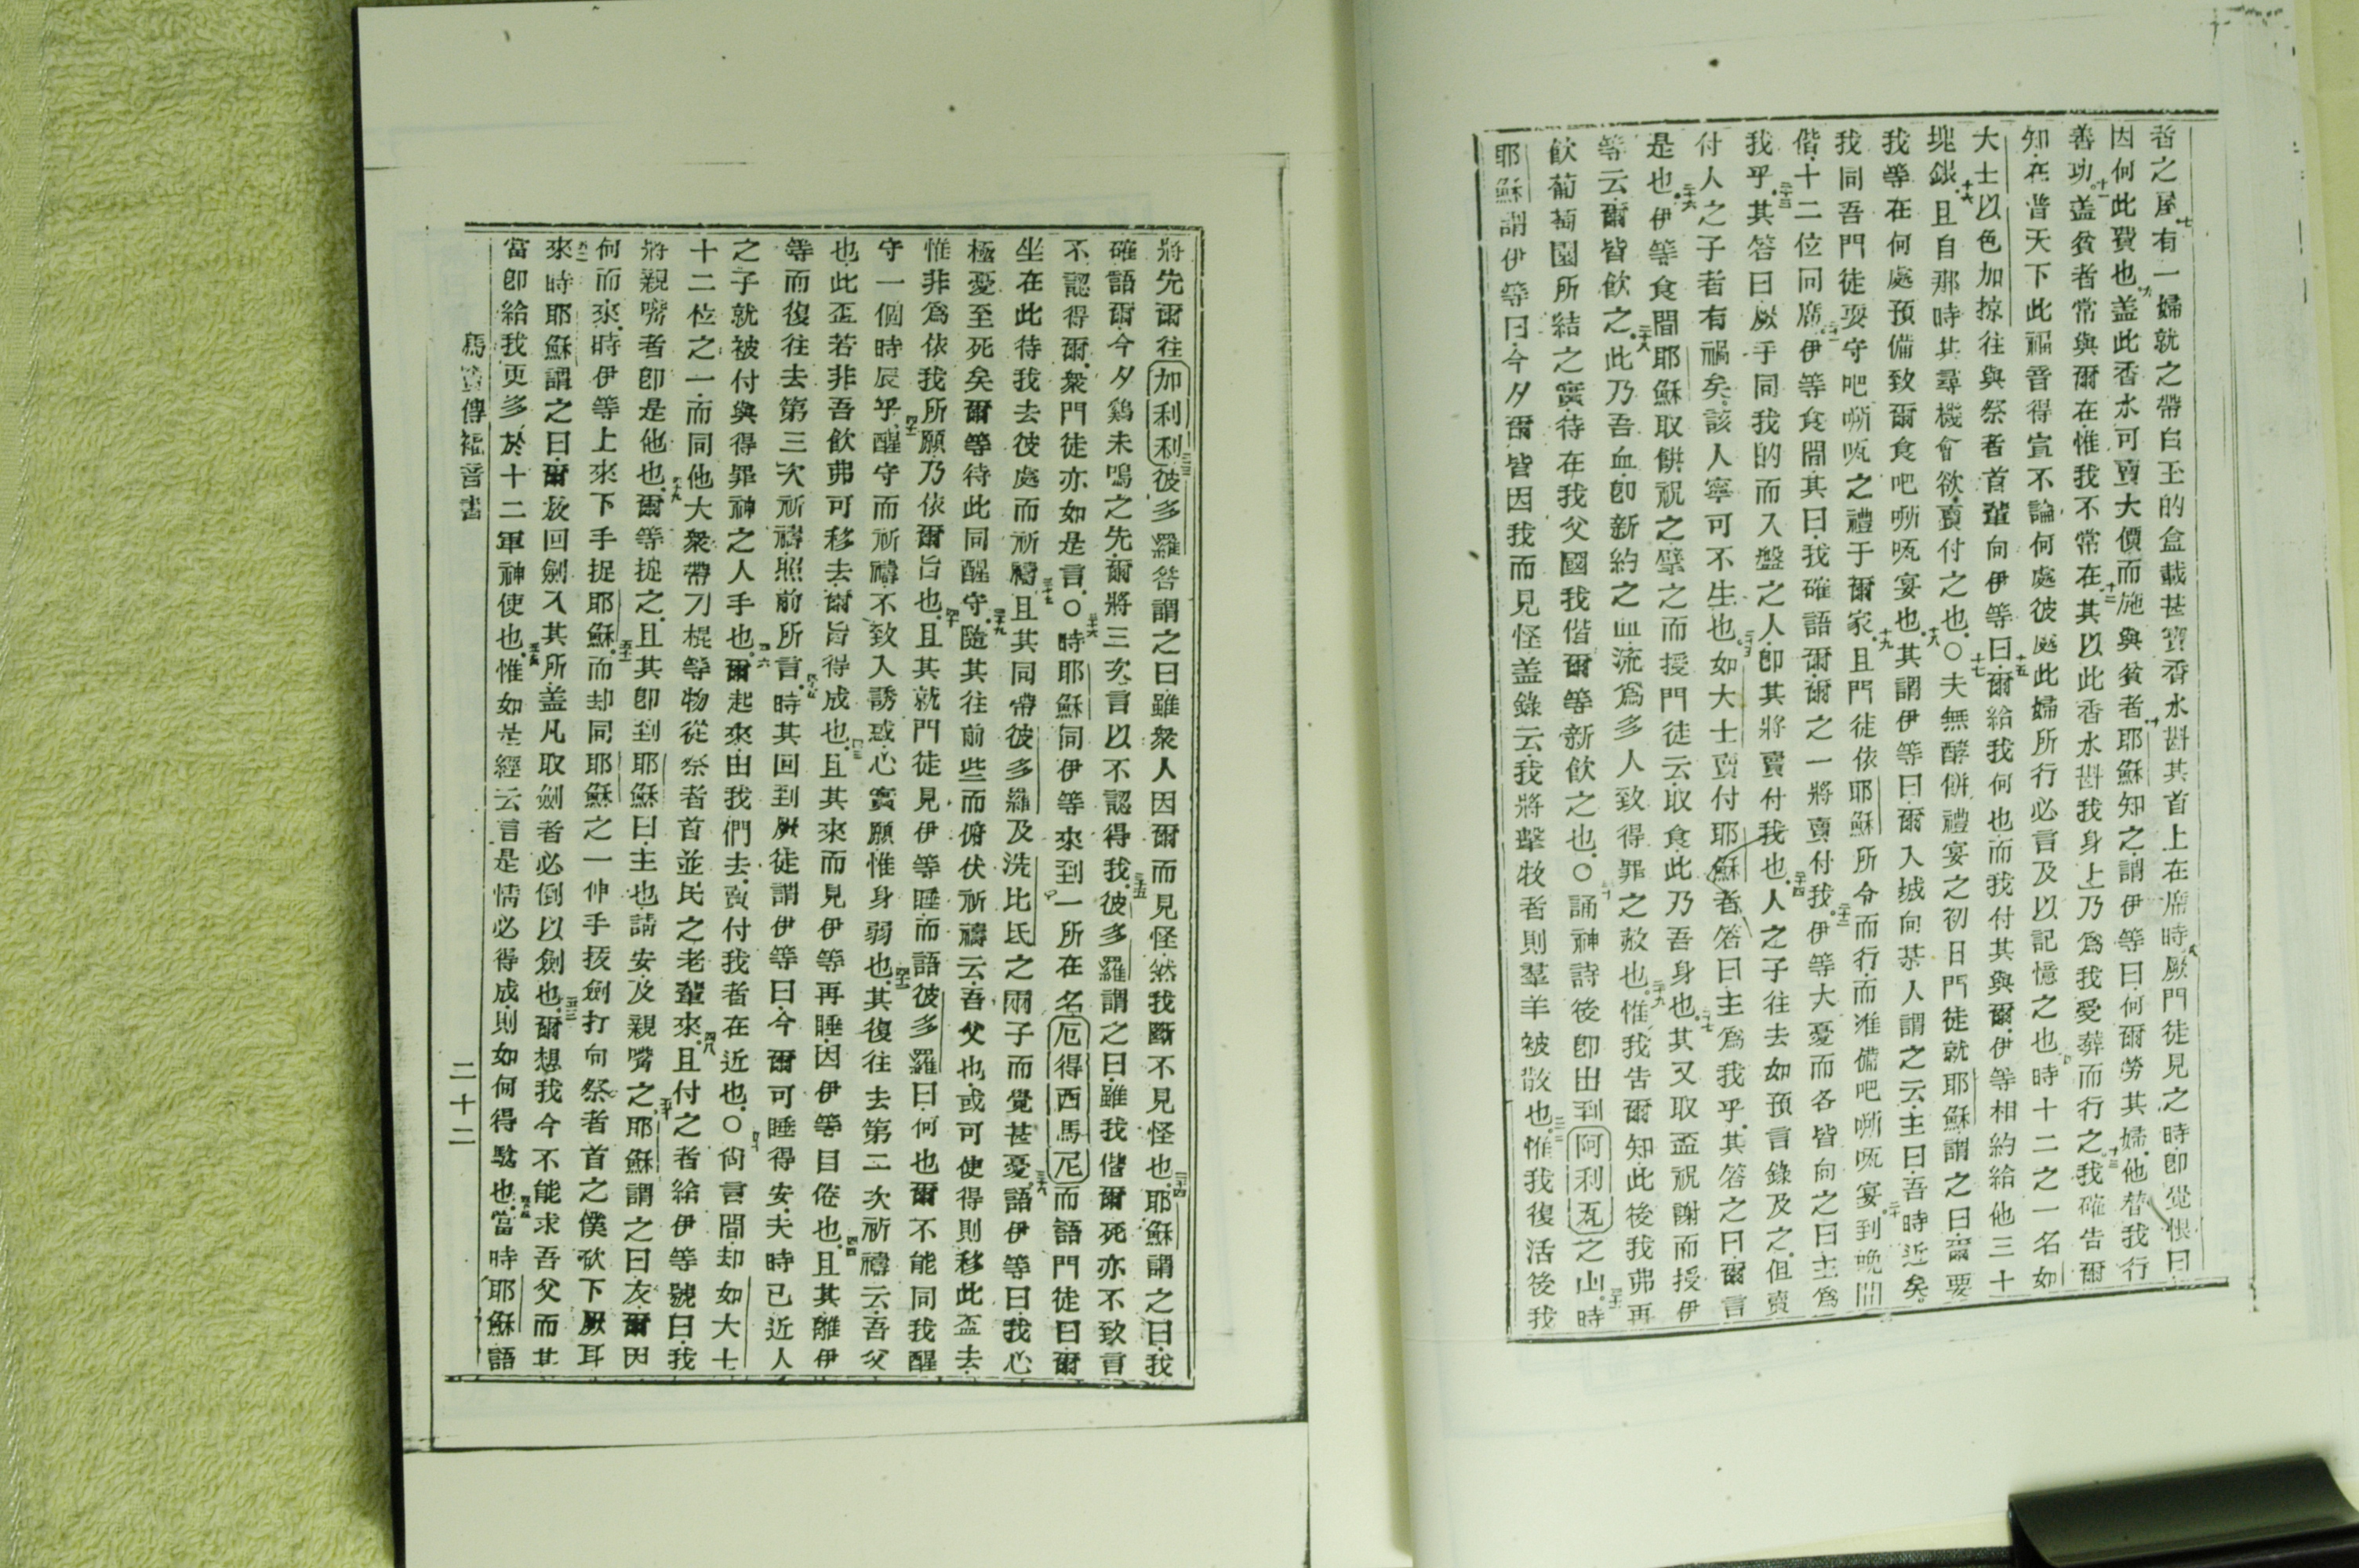 者之屋七有一婦就之帶白玉的盒載甚寶香水斟其首上在席時八厥門徒見之時卽覺恨曰
因何此費也九盖此香水可賣大價而施與貧者十耶穌知之謂伊等曰何爾勞其婦他替我行
善功十一盖貧者常與爾在惟我不常在十二其以此香水斟我身上乃爲我受葬而行之十三我確告爾
知在普天下此福音得宣不論何處彼處此婦所行必言及以記憶之也時十二之一名如
大士以色加掠往與祭者首輩向伊等曰十五爾給我何也而我付其與爾伊等相約給他三十
塊銀十六且自那時其尋機會欲賣付之也〇十七夫無酵餅禮宴之初日門徒就耶穌謂之曰爾要
我等在何處預備致爾食吧㗭㕭宴也十八其謂伊等曰爾入城向某人謂之云主曰吾時近矣
我同吾門徒要守吧㗭㕭之禮于爾家十九且門徒依耶穌所令而行而准備吧㗭㕭宴二十到晚間
偕十二位同席二一伊等食間其曰我確語爾爾之一將賣付我二十二伊等大憂而各皆向之曰主爲
我乎二十三其答曰厥手同我的而入盤之人卽其將賣付我也二十四人之子往去如預言錄及之但賣
付人之子者有禍矣該人寧可不生也二十五如大士賣付耶穌者答曰主爲我乎其答之曰爾言
是也二十六伊等食間耶穌取餅祝之擘之而授門徒云取食此乃吾身也二十七其又取盃祝謝而授伊
等云爾皆飲之二十八此乃吾血卽新約之血流爲多人致得罪之赦也二十九惟我告爾知此後我弗再
飲葡萄園所結之實待在我父國我偕爾等新飲之也〇三十誦神詩後卽出到阿利瓦之山三十一時
耶穌謂伊等曰今夕爾皆因我而見怪盖錄云我將擊牧者則羣羊被散也三二惟我復活後我
將先爾往加利利三三彼多羅答謂之曰雖衆人因爾而見怪然我斷不見怪也三十四耶穌謂之曰我
確語爾今夕鷄未鳴之先爾將三次言以不認得我三十五彼多羅謂之曰雖我偕爾死亦不致言
不認得爾衆門徒亦如是言〇三十六時耶穌同伊等來到一所在名厄得西馬尼而語門徒曰爾
坐在此待我去彼處而祈禱三十七且其同帶彼多羅及洗比氏之兩子而覺甚憂三十八語伊等曰我心
極憂至死矣爾等待此同醒守三十九隨其往前些而俯伏祈禱云吾父也或可使得則移此盃去
惟非爲依我所願乃依爾旨也四十且其就門徒見伊等睡而語彼多羅曰何也爾不能同我醒
守一個時辰乎四一醒守而祈禱不致入誘惑心實願惟身弱也四二其復往去第二次祈禱云吾父
也此盃若非吾飲弗可移去爾旨得成也四三且其來而見伊等再睡因伊等目倦也四四且其離伊
等而復往去第三次祈禱照前所言四五時其回到厥徒謂伊等曰今爾可睡得安夫時已近人
之子就被付與得罪神之人手也四六爾起來由我們去賣付我者在近也〇四七尙言間却如大士
十二位之一而同他大衆帶刀棍等物從祭者首並民之老輩來四八且付之者給伊等號曰我
將親嘴者卽是他也四十九爾等捉之且其卽到耶穌曰主也請安及親嘴之五十耶穌謂之曰友爾因
何而來時伊等上來下手捉耶穌五十一而却同耶穌之一伸手拔劍打向祭者首之僕砍下厥耳
來五二時耶穌謂之曰爾放回劍入其所盖凡取劍者必倒以劍也五三爾想我今不能求吾父而其
當卽給我更多於十二軍神使也五四惟如是經云言是情必得成則如何得騐也五五當時耶穌語
馬竇傳福音書　二十二